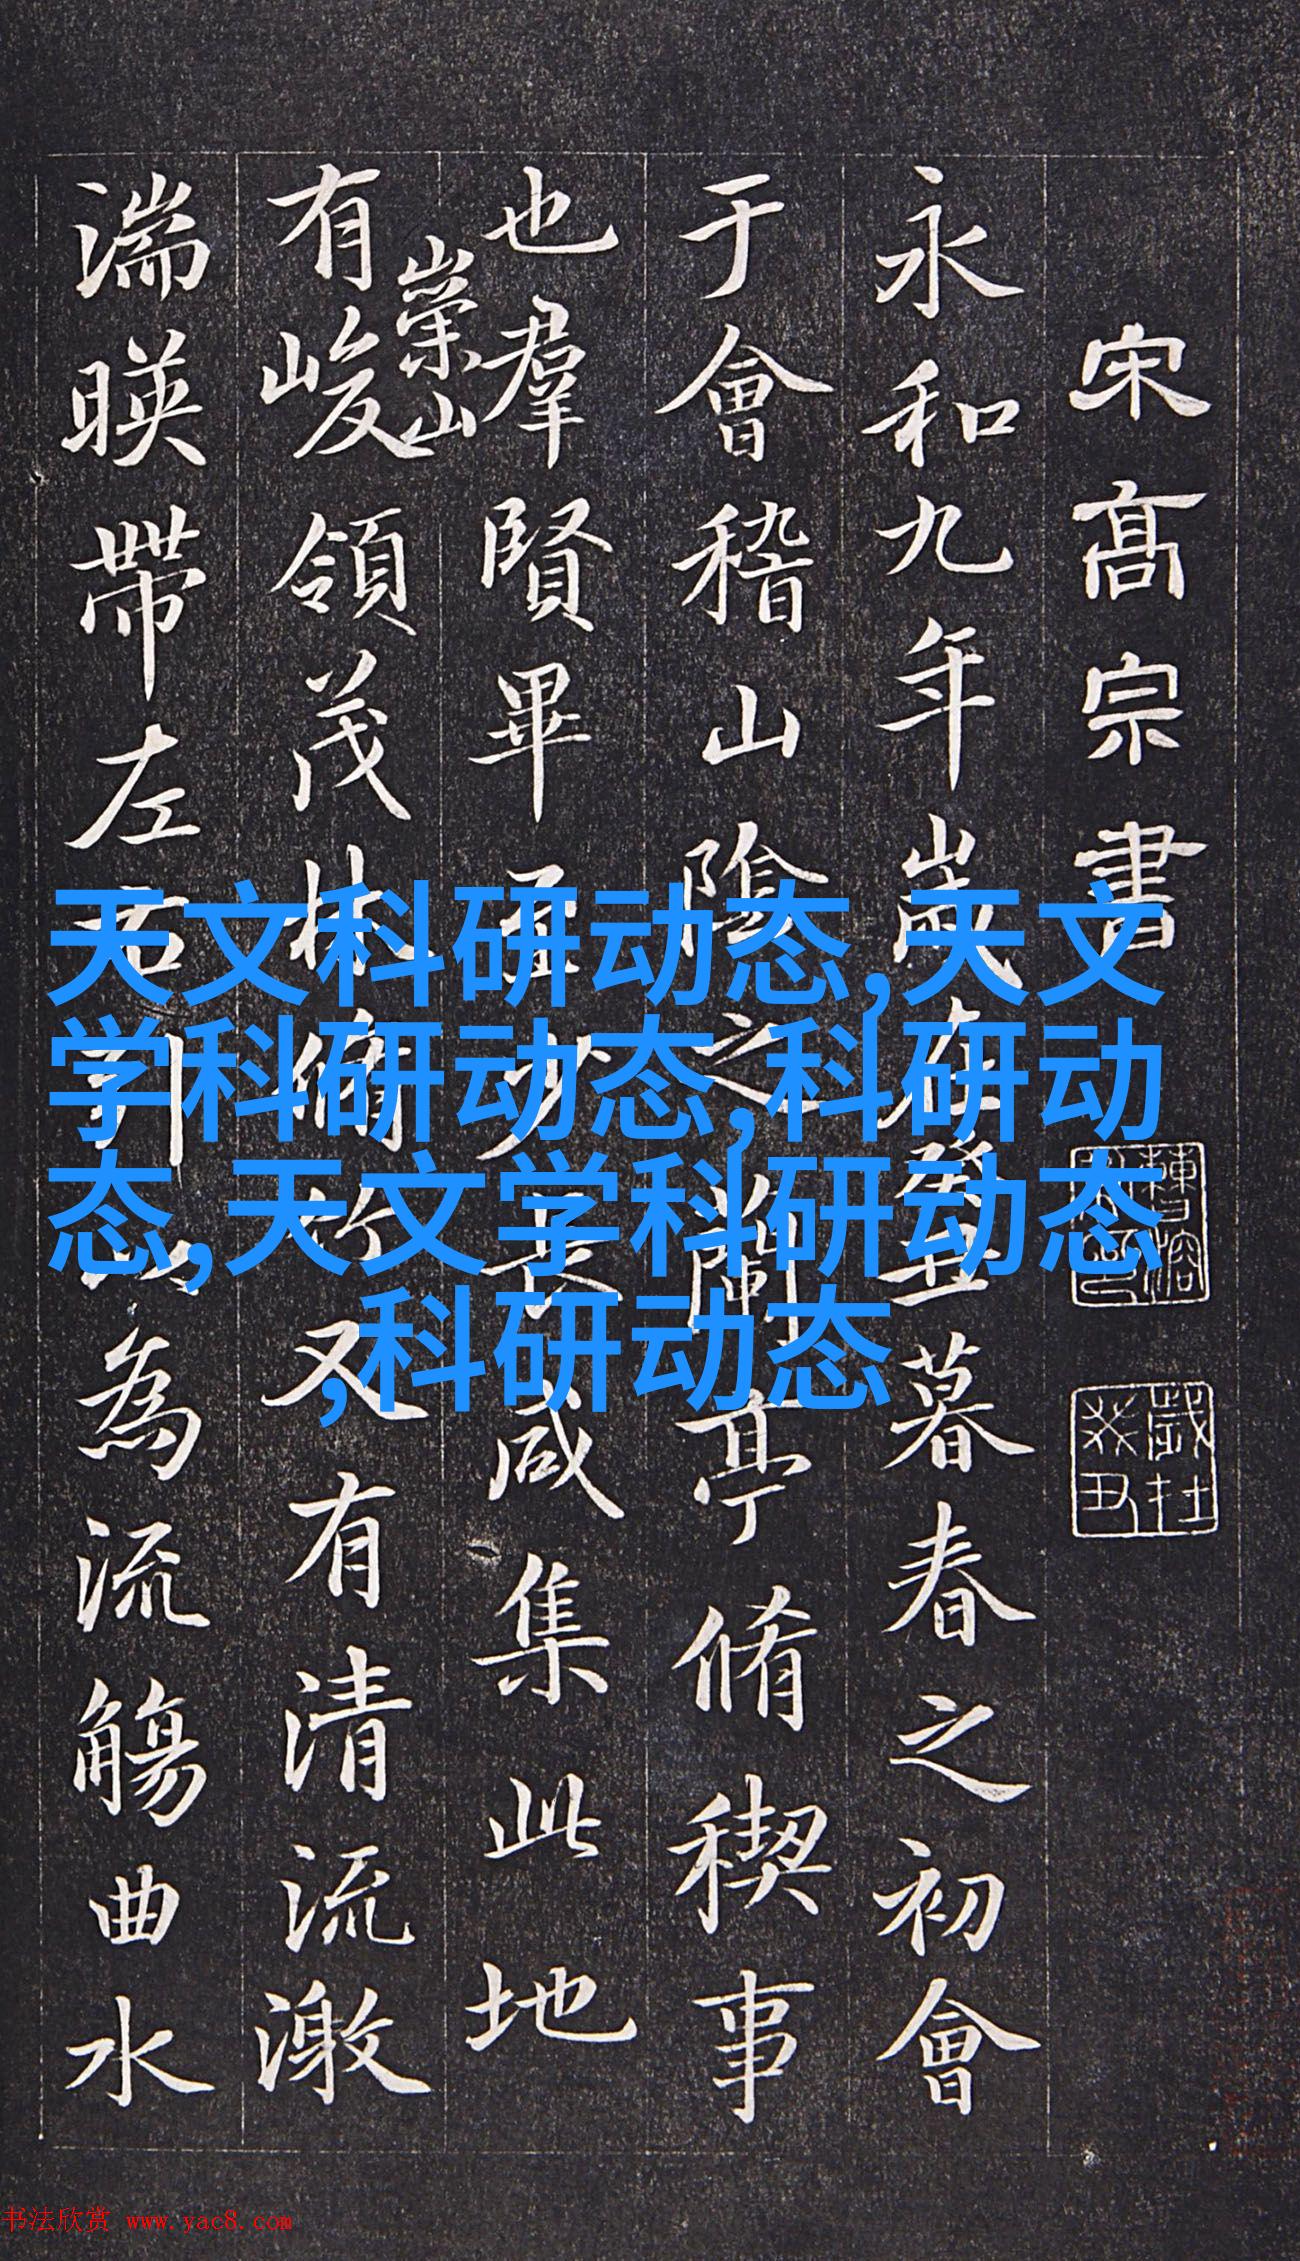 宋高宗書
歲在癸丑
永和九年歲在癸丑暮春之初會
于會稽山陰之蘭亭脩禊事
也羣賢畢至少長咸集此地
崇山
有峻領茂林脩竹又有清流激
湍暎帶左右引以為流觴曲水
天文科研动态,天文
学科研动态,科研动
态,天文学科研动态
,科研动态
书法欣赏 www.yac8.com